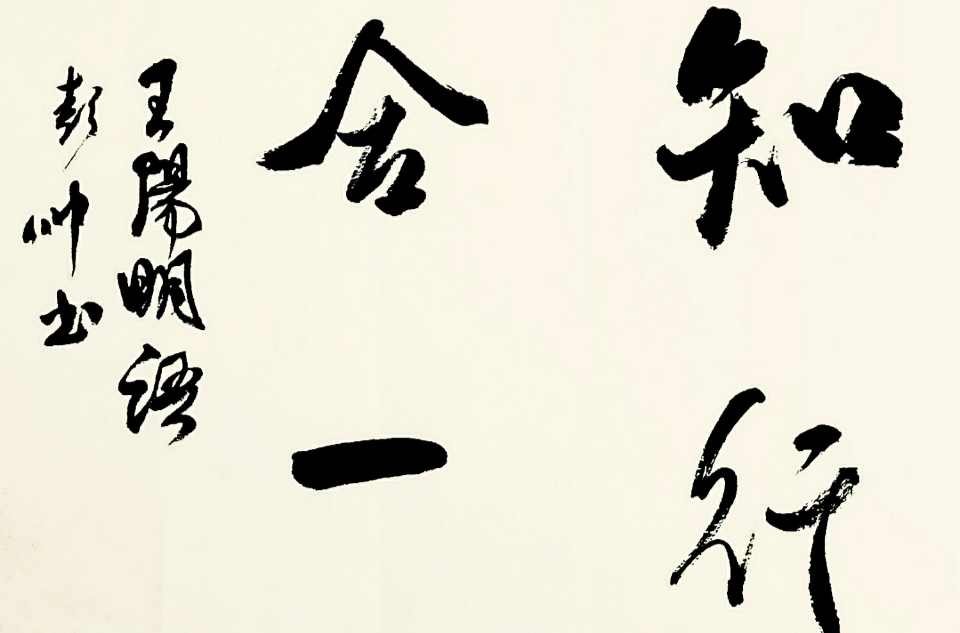 知行
合一
王陽明語
彭帅书